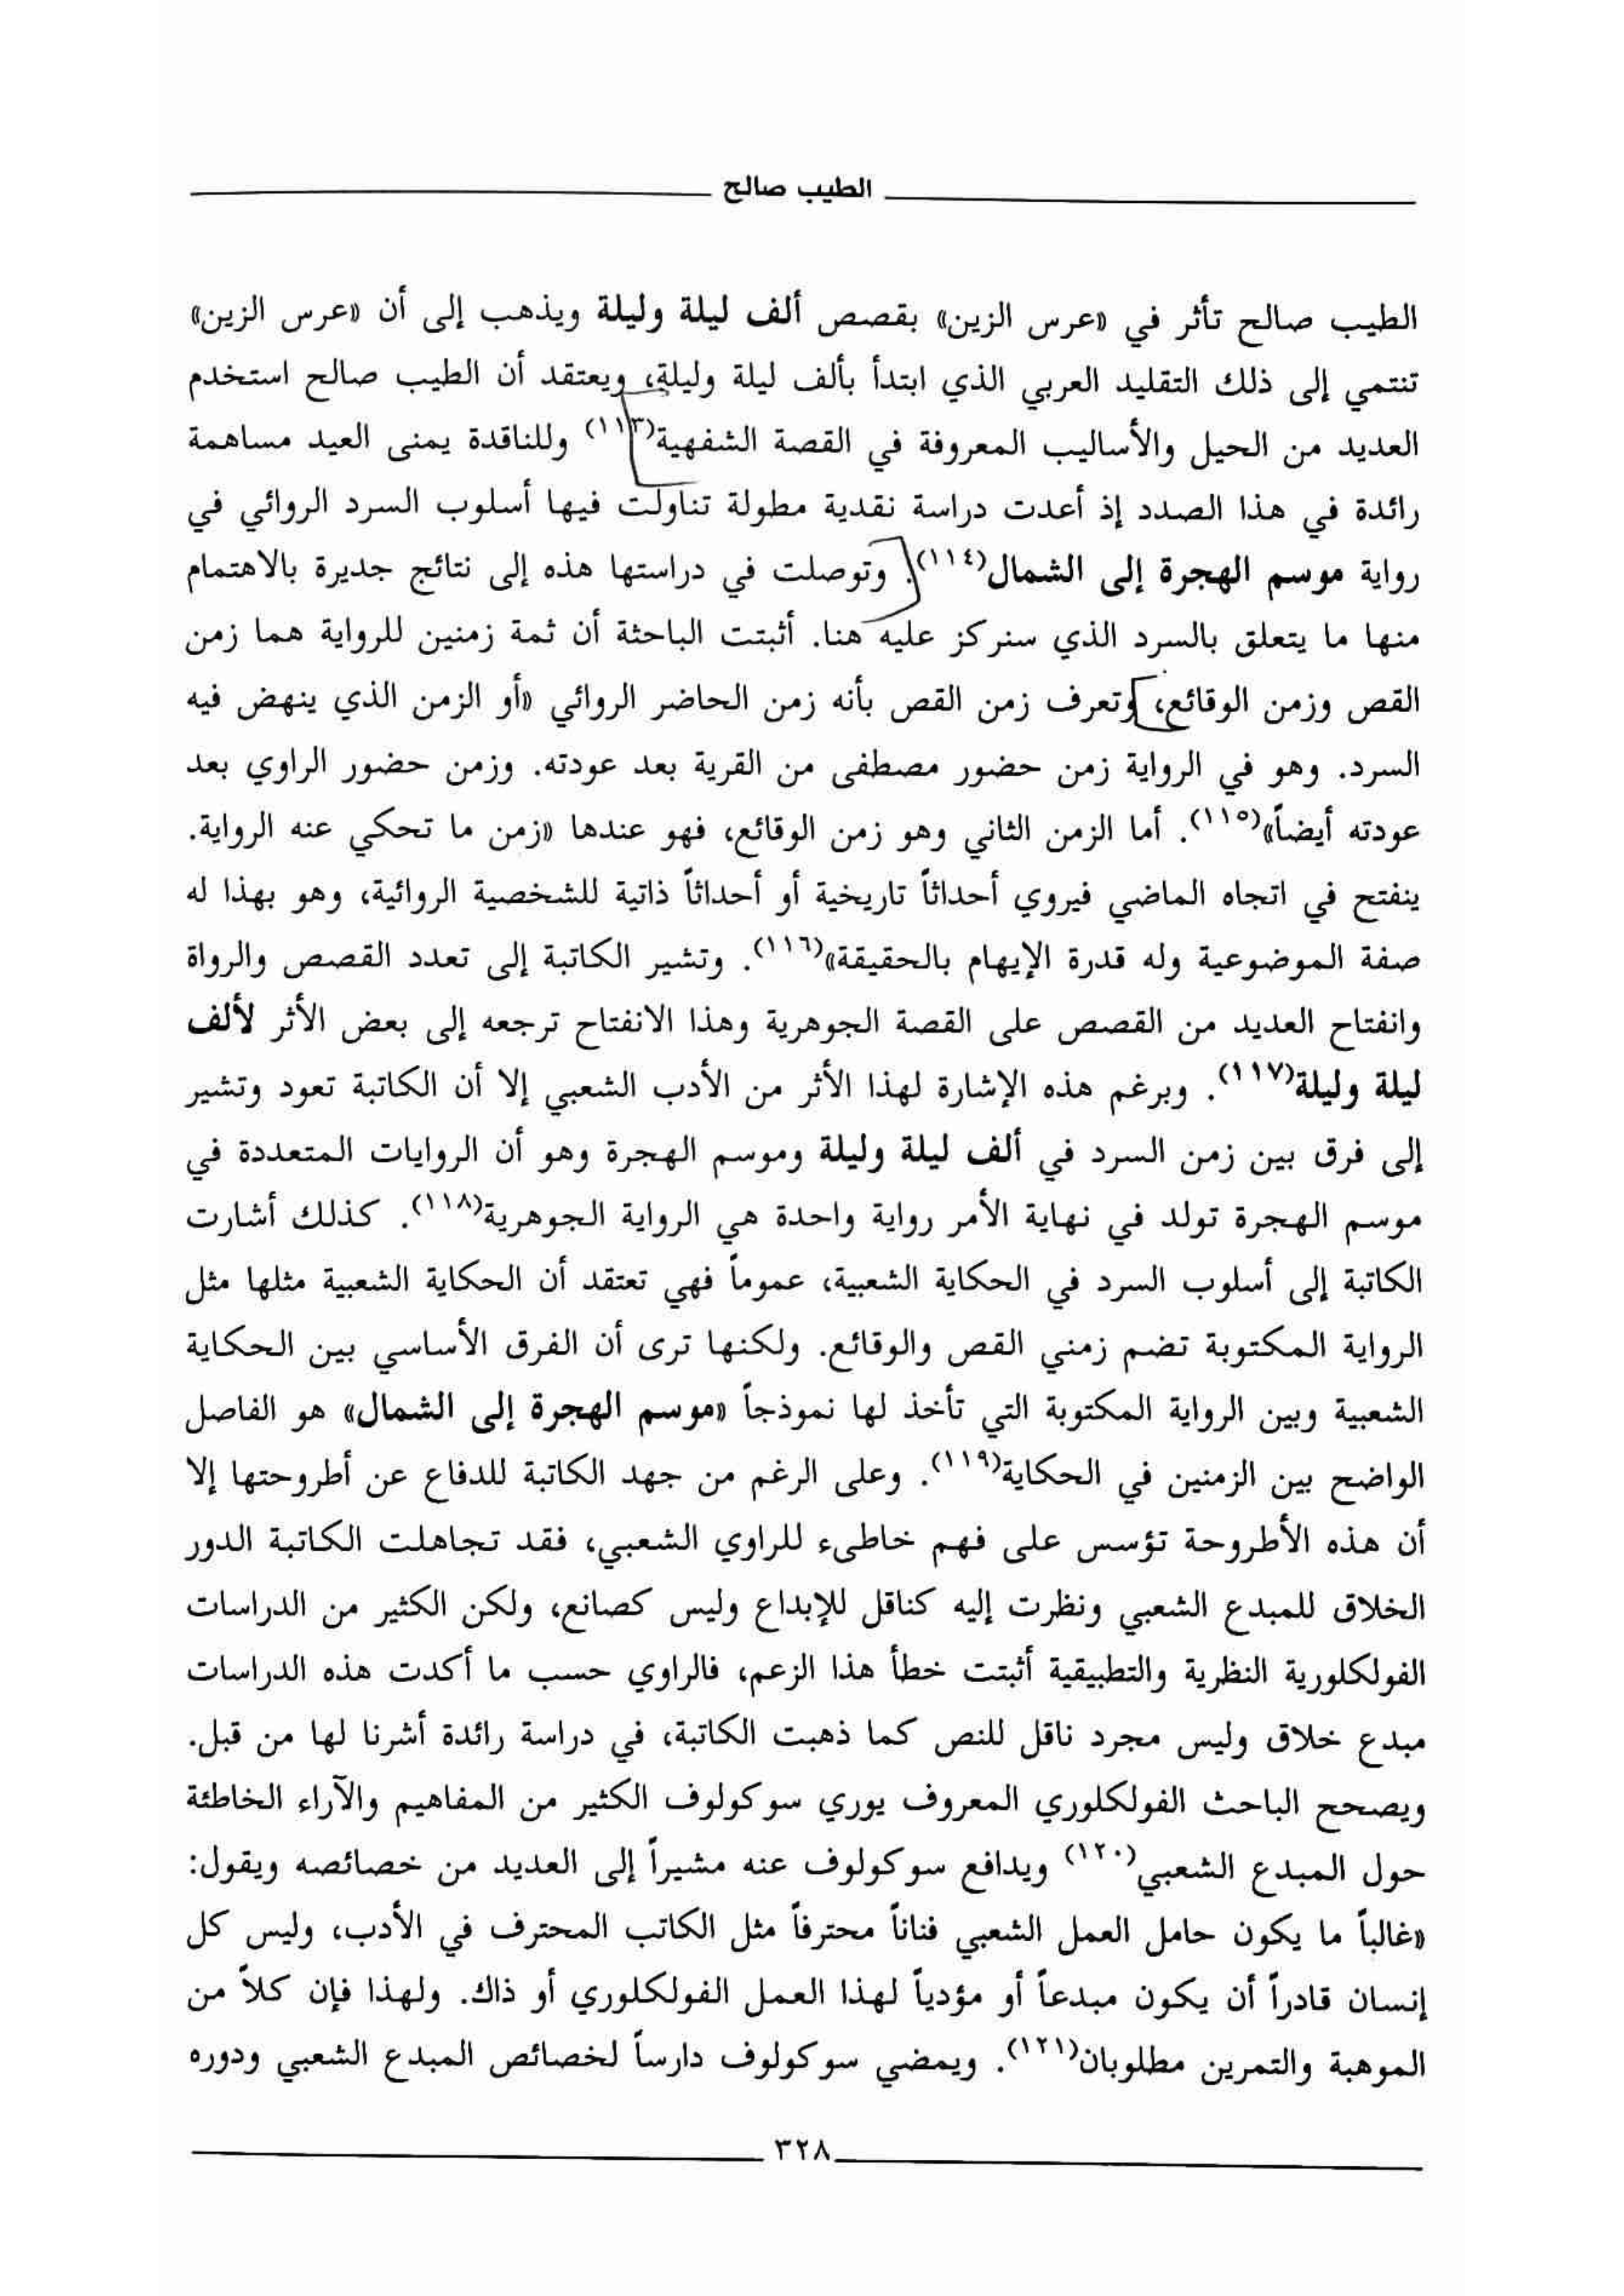 الطيب صالح
الطيب صالح تأثر في «عرس الزين» بقصص ألف ليلة وليلة ويذهب إلى أن «عرس الزين»
تنتمي إلى ذلك التقليد العربي الذي ابتدأ بألف ليلة وليلة، ويعتقد أن الطيب صالح استخدم
العديد من الحيل والأساليب المعروفة في القصة الشفهية(١١٣) وللناقدة يمنى العيد مساهمة
رائدة في هذا الصدد إذ أعدت دراسة نقدية مطولة تناولت فيها أسلوب السرد الروائي في
رواية موسم الهجرة إلى الشمال(١١٤). وتوصلت في دراستها هذه إلى نتائج جديرة بالاهتمام
منها ما يتعلق بالسرد الذي سنركز عليه هنا. أثبتت الباحثة أن ثمة زمنين للرواية هما زمن
القص وزمن الوقائع، وتعرف زمن القص بأنه زمن الحاضر الروائي «أو الزمن الذي ينهض فيه
السرد. وهو في الرواية زمن حضور مصطفى من القرية بعد عودته. وزمن حضور الراوي بعد
عودته أيضاً»(١١٥). أما الزمن الثاني وهو زمن الوقائع، فهو عندها «زمن ما تحكي عنه الرواية.
ينفتح في اتجاه الماضي فيروي أحداثاً تاريخية أو أحداثاً ذاتية للشخصية الروائية، وهو بهذا له
صفة الموضوعية وله قدرة الإيهام بالحقيقة»(١١٦). وتشير الكاتبة إلى تعدد القصص والرواة
وانفتاح العديد من القصص على القصة الجوهرية وهذا الانفتاح ترجعه إلى بعض الأثر لألف
ليلة وليلة(١١٧). وبرغم هذه الإشارة لهذا الأثر من الأدب الشعبي إلا أن الكاتبة تعود وتشير
إلى فرق بين زمن السرد في ألف ليلة وليلة وموسم الهجرة وهو أن الروايات المتعددة في
موسم الهجرة تولد في نهاية الأمر رواية واحدة هي الرواية الجوهرية(١١٨). كذلك أشارت
الكاتبة إلى أسلوب السرد في الحكاية الشعبية، عموماً فهي تعتقد أن الحكاية الشعبية مثلها مثل
الرواية المكتوبة تضم زمني القص والوقائع. ولكنها ترى أن الفرق الأساسي بين الحكاية
الشعبية وبين الرواية المكتوبة التي تأخذ لها نموذجاً «موسم الهجرة إلى الشمال» هو الفاصل
الواضح بين الزمنين في الحكاية(١١٩). وعلى الرغم من جهد الكاتبة للدفاع عن أطروحتها إلا
أن هذه الأطروحة تؤسس على فهم خاطىء للراوي الشعبي، فقد تجاهلت الكاتبة الدور
الخلاق للمبدع الشعبي ونظرت إليه كناقل للإبداع وليس كصانع، ولكن الكثير من الدراسات
الفولكلورية النظرية والتطبيقية أثبتت خطأ هذا الزعم، فالراوي حسب ما أكدت هذه الدراسات
مبدع خلاق وليس مجرد ناقل للنص كما ذهبت الكاتبة، في دراسة رائدة أشرنا لها من قبل.
ويصحح الباحث الفولكلوري المعروف يوري سوكولوف الكثير من المفاهيم والآراء الخاطئة
حول المبدع الشعبي(١٢٠) ويدافع سوكولوف عنه مشيراً إلى العديد من خصائصه ويقول:
«غالباً ما يكون حامل العمل الشعبي فناناً محترفاً مثل الكاتب المحترف في الأدب، وليس كل
إنسان قادراً أن يكون مبدعاً أو مؤدياً لهذا العمل الفولكلوري أو ذاك. ولهذا فإن كلاً من
الموهبة والتمرين مطلوبان(١٢١). ويمضي سوكولوف دارساً لخصائص المبدع الشعبي ودوره
٣٢٨